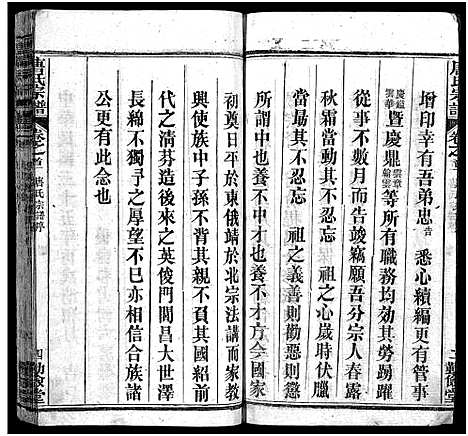 增印幸有吾弟忠告 悉心續編更有管事
慶鎰雲華暨慶鼎雲章翰雲等所有職務均効其勞踴躍
從事不數月而告竣竊願吾分宗人春露
秋霜當動其不忍忘 祖之心歲時伏臘
當勗其不忍忘 祖之義善則勸惡則懲
所謂中也養不中才也養不才方今國家
初奠日平於東俄靖於北宗法講而家教
興使族中子孫不背其親不紹前
代之清芬造後來之英俊門閭昌大世澤
長綿不獨予之厚望不已亦相信合族諸
公更有此念也
唐氏宗譜
卷之首
唐氏宗譜
卷之首
四
勤儉堂